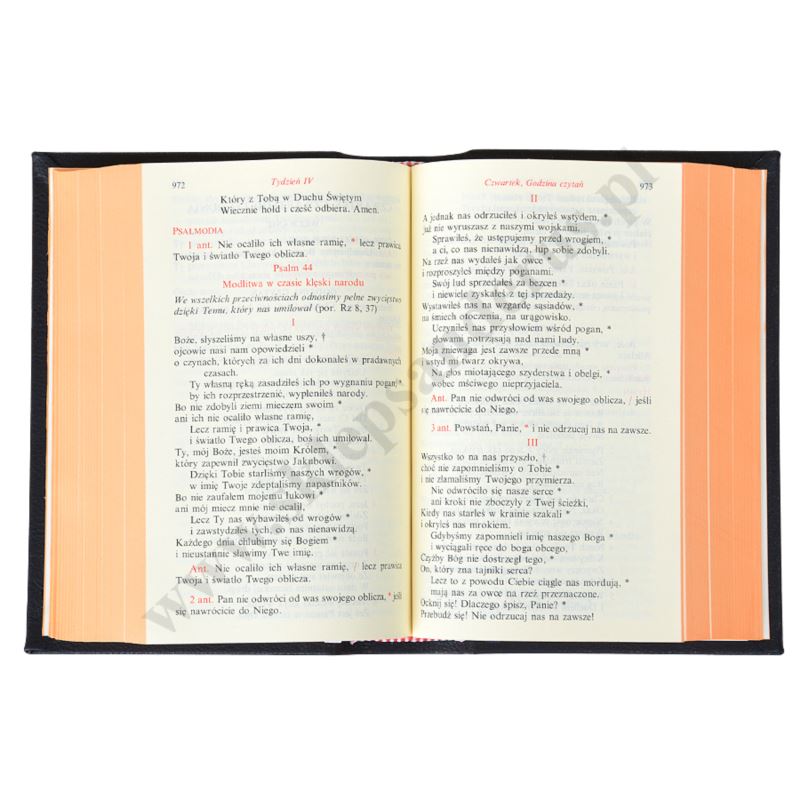 972
Tydzień IV
Który z Tobą w Duchu Świętym
Wiecznie hołd i cześć odbiera. Amen.
PSALMODIA
1 ant. Nie ocaliło ich własne ramię, * lecz prawica
Twoja i światło Twego oblicza.
Psalm 44
Modlitwa w czasie klęski narodu
We wszelkich przeciwnościach odnosimy pełne zwycięstwo
dzięki Temu, który nas umiłował (por. Rz 8, 37)
I
Boże, słyszeliśmy na własne uszy, †
ojcowie nasi nam opowiedzieli *
o czynach, których za ich dni dokonałeś w pradawnych
czasach.
Ty własną ręką zasadziłeś ich po wygnaniu pogan, *
by ich rozprzestrzenić, wypleniłeś narody.
Bo nie zdobyli ziemi mieczem swoim *
ani ich nie ocaliło własne ramię,
Lecz ramię i prawica Twoja, *
i światło Twego oblicza, boś ich umiłował.
Ty, mój Boże, jesteś moim Królem, *
który zapewnił zwycięstwo Jakubowi.
Dzięki Tobie starliśmy naszych wrogów, *
w imię Twoje zdeptaliśmy napastników.
Bo nie zaufałem mojemu łukowi *
ani mój miecz mnie nie ocalił,
Lecz Ty nas wybawiłeś od wrogów *
i zawstydziłeś tych, co nas nienawidzą.
Każdego dnia chlubimy się Bogiem *
i nieustannie sławimy Twe imię.
Ant. Nie ocaliło ich własne ramię, / lecz prawica
Twoja i światło Twego oblicza.
2 ant. Pan nie odwróci od was swojego oblicza, * jeśli
się nawrócicie do Niego.
Czwartek, Godzina czytań
973
II
A jednak nas odrzuciłeś i okryłeś wstydem, *
już nie wyruszasz z naszymi wojskami.
Sprawiłeś, że ustępujemy przed wrogiem, *
a ci, co nas nienawidzą, łup sobie zdobyli.
Na rzeź nas wydałeś jak owce *
i rozproszyłeś między poganami.
Swój lud sprzedałeś za bezcen *
i niewiele zyskałeś z tej sprzedaży.
Wystawiłeś nas na wzgardę sąsiadów, *
na śmiech otoczenia, na urągowisko.
Uczyniłeś nas przysłowiem wśród pogan, *
potrząsają nad nami ludy.
Moja zniewaga jest zawsze przede mną *
i wstyd mi twarz okrywa,
Na głos miotającego szyderstwa i obelgi, *
wobec mściwego nieprzyjaciela.
Ant. Pan nie odwróci od was swojego oblicza, / jeśli
się nawrócicie do Niego.
3 ant. Powstań, Panie, * i nie odrzucaj nas na zawsze.
III
Wszystko to na nas przyszło, †
choć nie zapomnieliśmy o Tobie *
i nie złamaliśmy Twojego przymierza.
Nie odwróciło się nasze serce *
ani kroki nie zboczyły z Twej ścieżki,
Kiedy nas starłeś w krainie szakali *
i okryłeś nas mrokiem.
Gdybyśmy zapomnieli imię naszego Boga *
i wyciągali ręce do boga obcego,
Czyżby Bóg nie dostrzegł tego, *
On, który zna tajniki serca?
Lecz to z powodu Ciebie ciągle nas mordują, *
mają nas za owce na rzeź przeznaczone.
Ocknij się! Dlaczego śpisz, Panie? *
Przebudź się! Nie odrzucaj nas na zawsze!